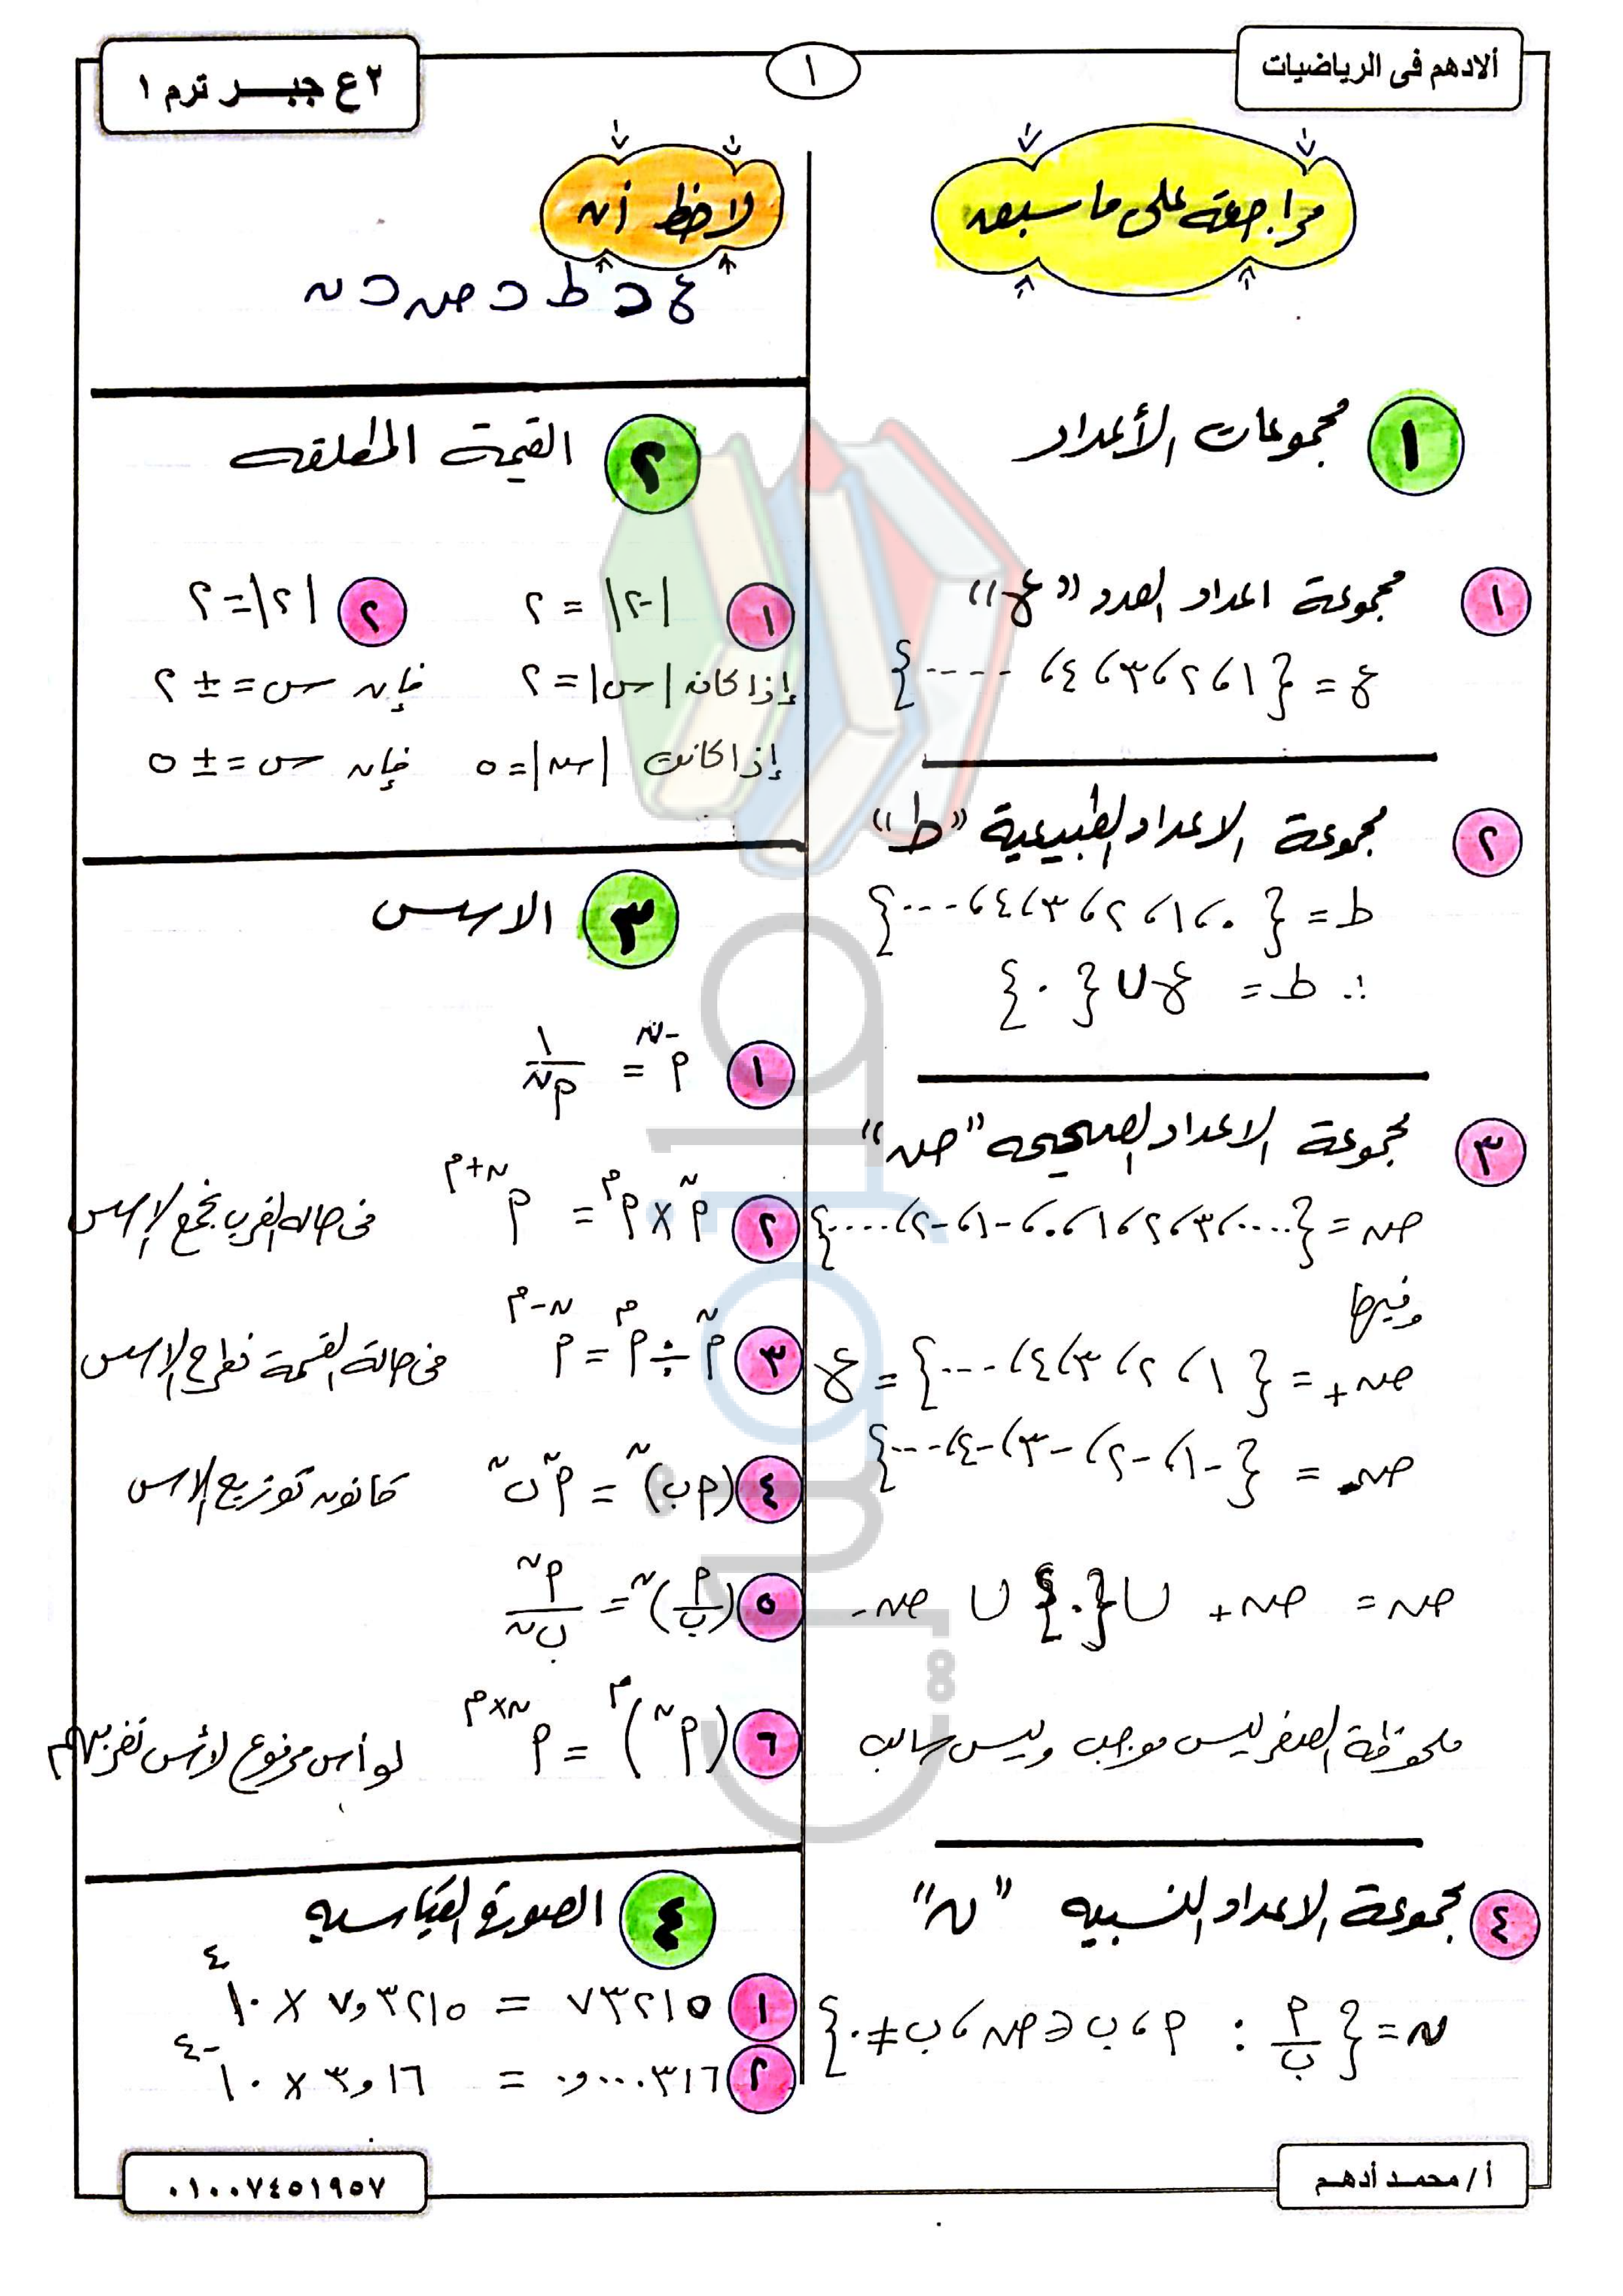 ألادهم فى الرياضيات
١
٢ع جبــر ترم ١
مراجعة على ما سبق
١ مجموعات الأعداد
١ مجموعة اعداد العد "ع"
ع = {١، ٢، ٣، ٤، ----}
٢ مجموعة الاعداد الطبيعية "ط"
ط = {٠، ١، ٢، ٣، ٤، ---}
∴ ط = ع ∪ {٠}
٣ مجموعة الاعداد الصحيحه "صـ"
صـ = {....، ٣، ٢، ١، ٠، -١، -٢، ....}
وفيها
صـ+ = {١، ٢، ٣، ٤، ---} = ع
صـ- = {-١، -٢، -٣، -٤، ---}
صـ = صـ+ ∪ {٠} ∪ صـ-
ملحوظة الصفر ليس موجب وليس سالب
٤ مجموعة الاعداد النسبيه "ن"
ن = {أ/ب : أ، ب ∈ صـ، ب ≠ ٠}
لاحظ أن
ع ⊂ ط ⊂ صـ ⊂ ن
٢ القيمة المطلقه
١ |-٢| = ٢ ٢ |٢| = ٢
إذا كان |س| = ٢ فإن س = ± ٢
إذا كانت |س| = ٥ فإن س = ± ٥
٣ الاسس
١ أ^-ن = ١/أ^ن
٢ أ^ن × أ^م = أ^ن+م فى حاله الضرب نجمع الاسس
٣ أ^ن ÷ أ^م = أ^ن-م فى حالة القسمة نطرح الاسس
٤ (أب)^ن = أ^ن ب^ن قانون توزيع الاس
٥ (أ/ب)^ن = أ^ن/ب^ن
٦ (أ^ن)^م = أ^ن×م لو أس مرفوع لأس نضربهم
٤ الصورة القياسيه
١ ٧٣٢١٥ = ٧,٣٢١٥ × ١٠^٤
٢ ٠,٠٠٠٣١٦ = ٣,١٦ × ١٠^-٤
أ/ محمـد أدهـم
٠١٠٠٧٤٥١٩٥٧